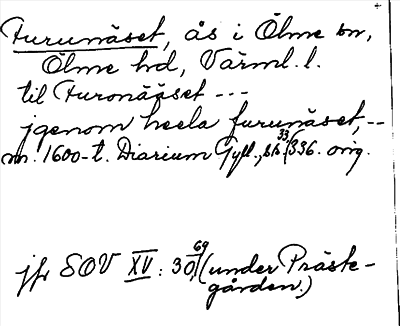 Furunäset, ås i Ölme sn,
Ölme hd, Värml. l.
til Furonääset ---
jgenom heela furunäset, --
m. 1600-t. Diarium Gyll., bl. 33/336. orig.
jfr SOV XV: 30, 69 (under Präste-
gården.)